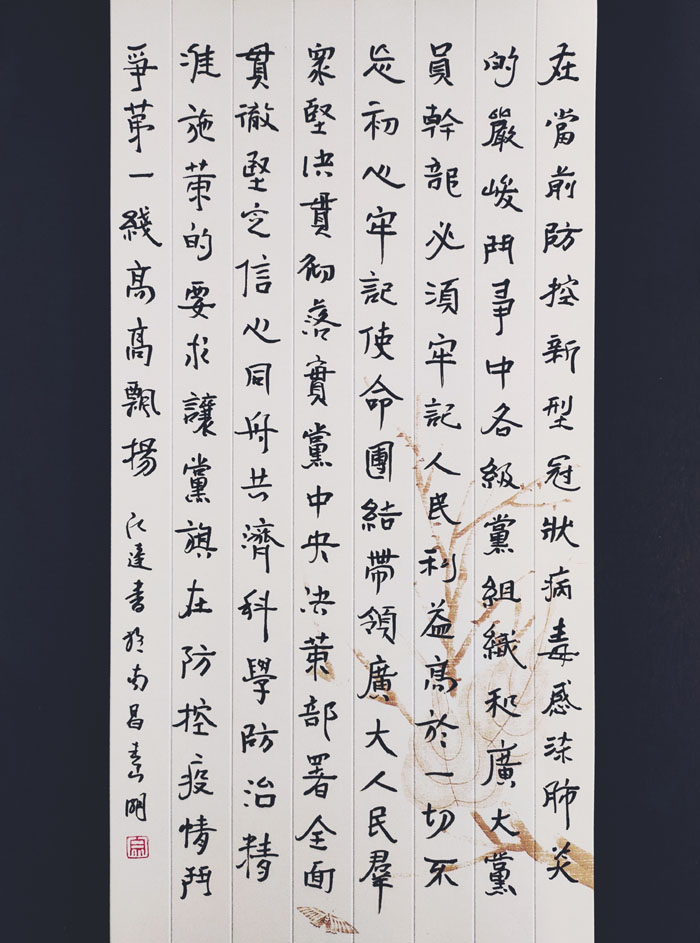 在當前防控新型冠狀病毒感染肺炎
的嚴峻鬥爭中各級黨組織和廣大黨
員幹部必須牢記人民利益高於一切不
忘初心牢記使命團結帶領廣大人民羣
眾堅決貫彻落實黨中央決策部署全面
貫徹堅定信心同舟共濟科學防治精
准施策的要求讓黨旗在防控疫情鬥
爭第一綫高高飄揚
達書於南昌